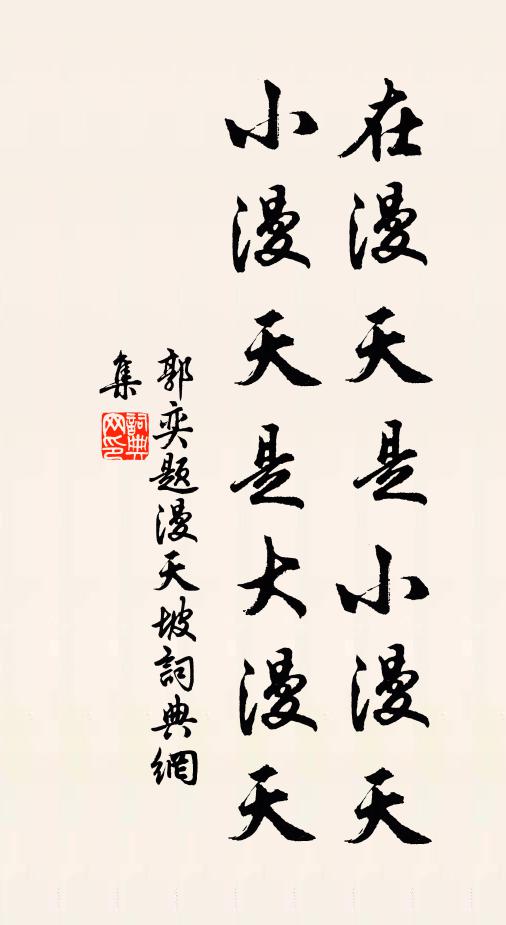 在漫天是小漫天
小漫天是大漫天
郭奕題漫天坡詞典網
集
詞典網印